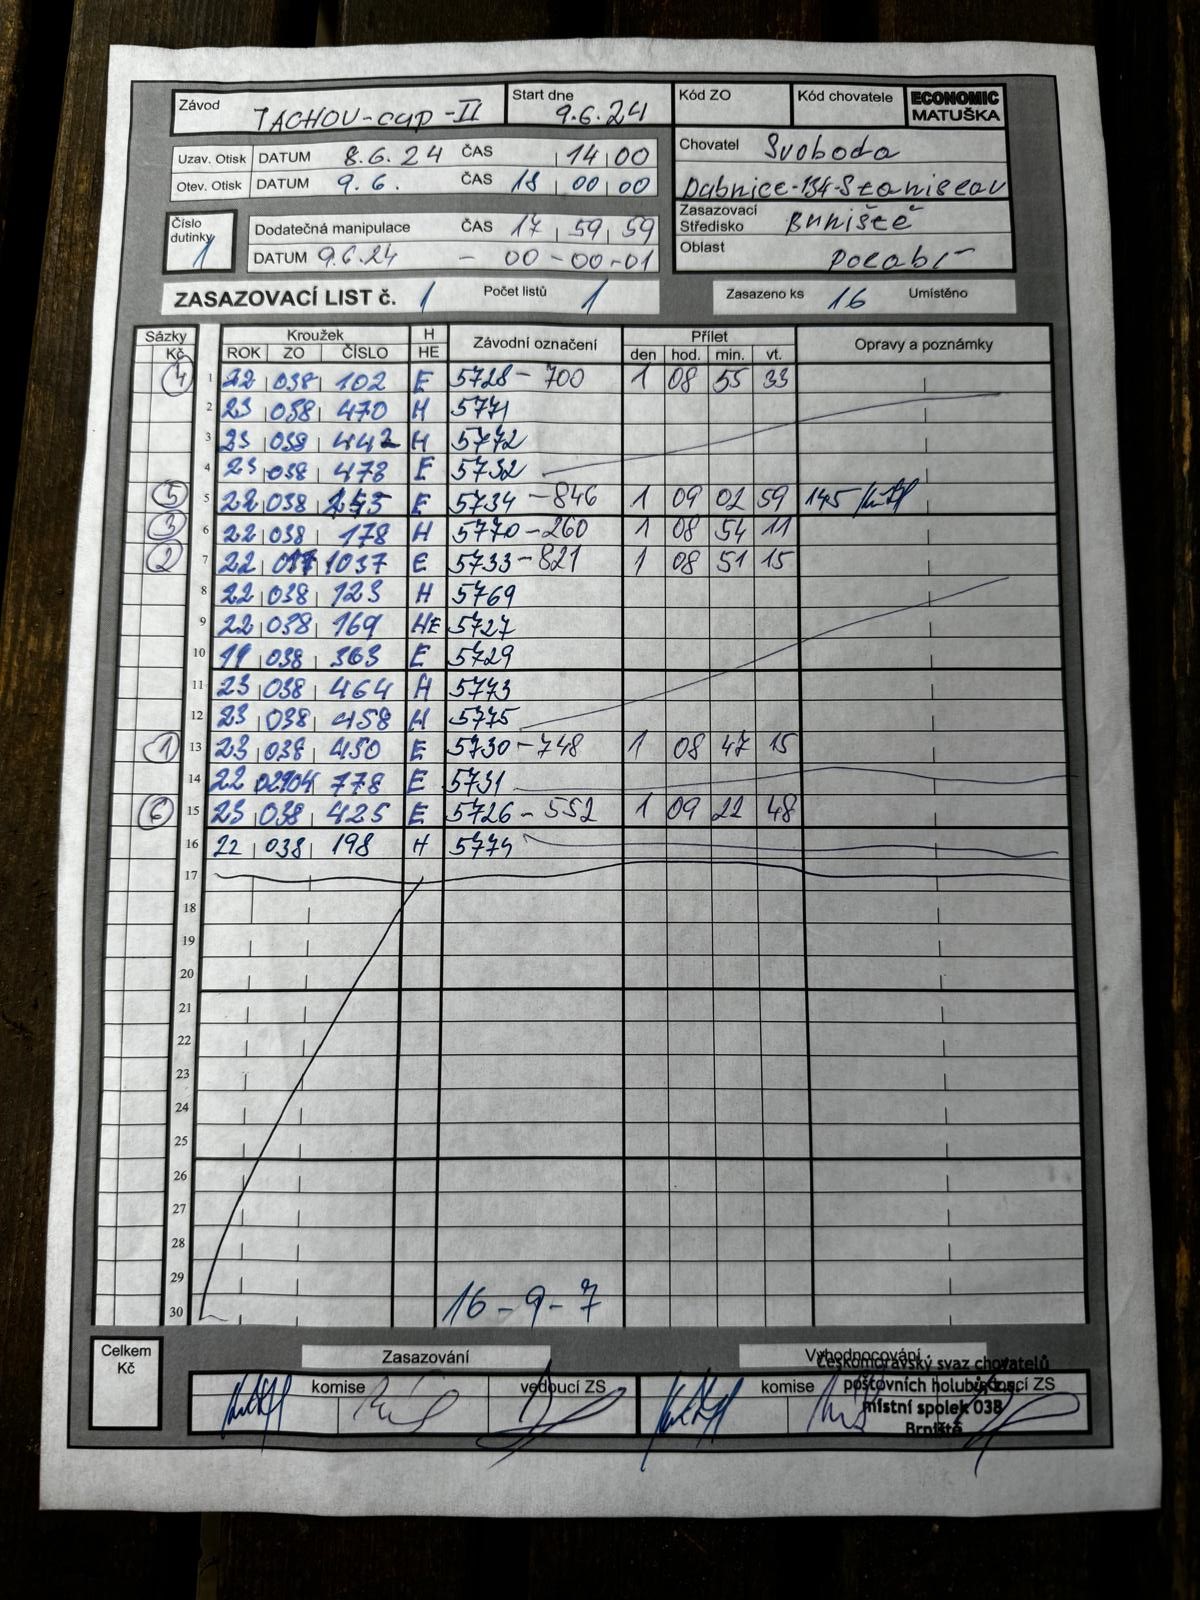 Závod TACHOV-CUP-II Start dne 9.6.24 Kód ZO Kód chovatele ECONOMIC MATUŠKA
Uzav. Otisk DATUM 8.6.24 ČAS 14 00
Otev. Otisk DATUM 9.6. ČAS 18 00 00
Chovatel Svoboda
Dubnice-134-Stanislav
Číslo dutinky 1
Dodatečná manipulace ČAS 17 59 59
DATUM 9.6.24 - 00-00-01
Zasazovací Středisko Brniště
Oblast Polabí
ZASAZOVACÍ LIST č. 1 Počet listů 1 Zasazeno ks 16 Umístěno
Sázky Kroužek H Závodní označení Přílet Opravy a poznámky
Kč ROK ZO ČÍSLO HE den hod. min. vt.
4 1 22 038 102 E 5728-700 1 08 55 33
2 23 038 470 H 5771
3 23 038 442 H 5772
4 23 038 473 E 5732
5 5 22 038 E 5734-846 1 09 02 59 145
3 6 22 038 178 H 5770-260 1 08 54 11
2 7 22 1037 E 5733-821 1 08 51 15
8 22 038 123 H 5769
9 22 038 169 HE 5727
10 19 038 363 E 5729
11 23 038 464 H 5773
12 23 038 458 H 5775
1 13 23 038 450 E 5730-748 1 08 47 15
14 22 02904 778 E 5731
6 15 23 038 425 E 5726-552 1 09 22 48
16 22 038 198 H 5774
17
18
19
20
21
22
23
24
25
26
27
28
29
30 16-9-7
Celkem Kč
Zasazování Vyhodnocování
komise vedoucí ZS komise vedoucí ZS
Českomoravský svaz chovatelů
poštovních holubů,
místní spolek 038
Brniště